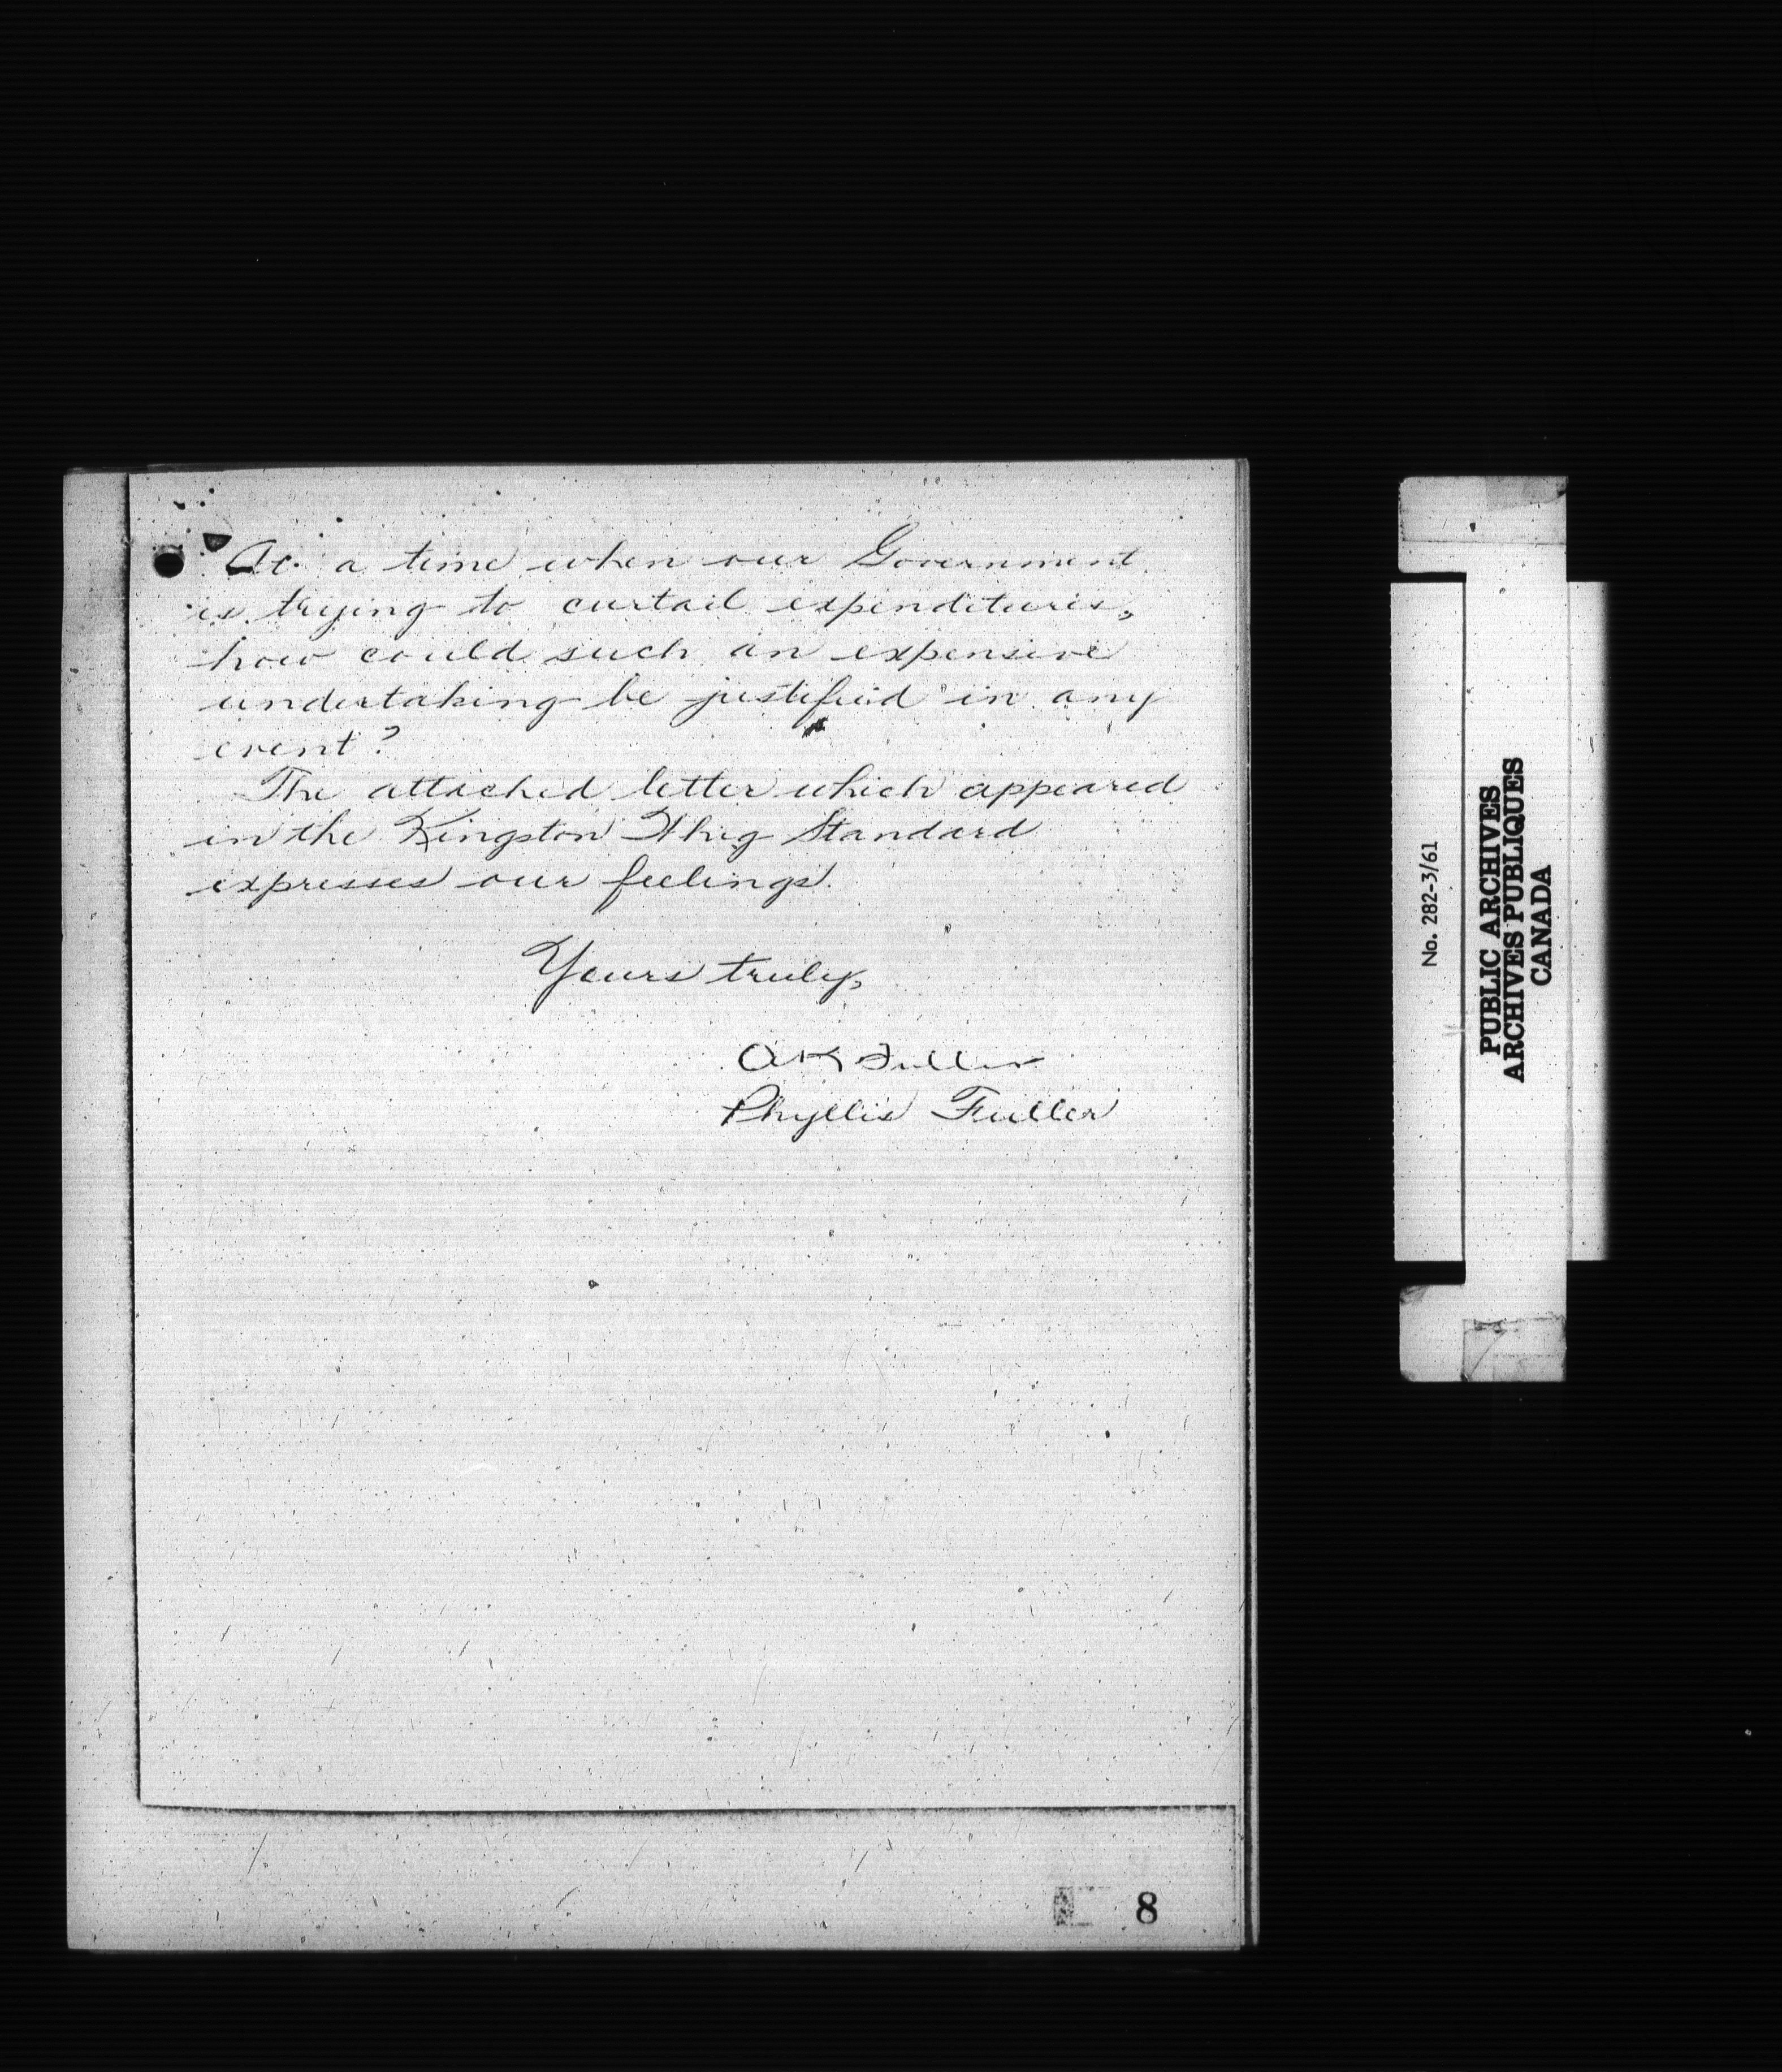 At a time when our Government
is trying to curtail expenditures,
how could such an expensive
undertaking be justified in any
event?
The attached letter which appeared
in the Kingston Whig Standard
expresses our feelings.
Yours truly,
A K Fuller
Phyllis Fuller
8
No. 282-3/61
PUBLIC ARCHIVES
ARCHIVES PUBLIQUES
CANADA